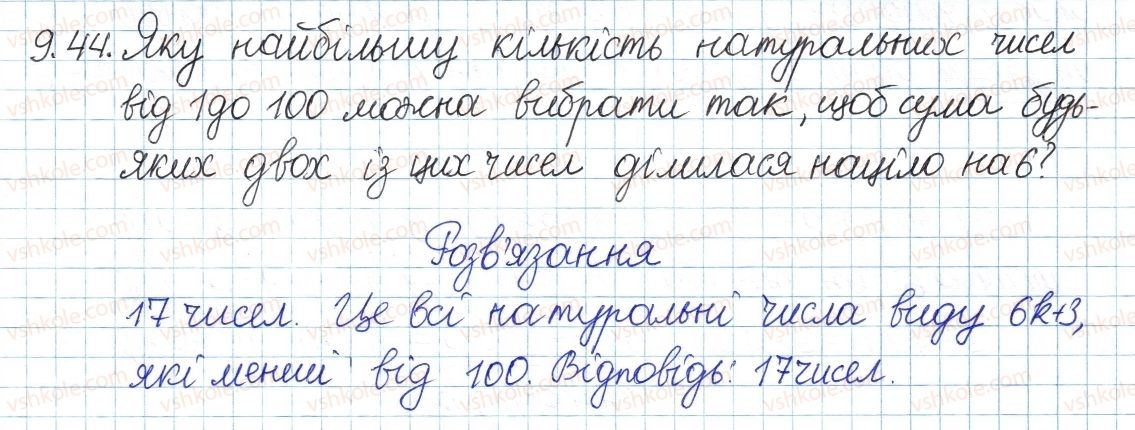 9.44. Яку найбільшу кількість натуральних чисел
від 1 до 100 можна вибрати так, щоб сума будь-
яких двох із цих чисел ділилася націло на 6?
Розв'язання
17 чисел. Це всі натуральні числа виду 6k+3,
які менші від 100. Відповідь: 17 чисел.